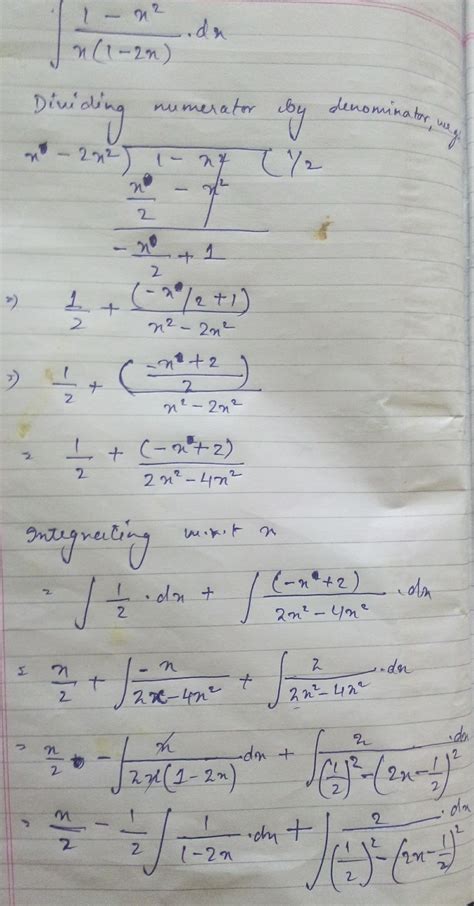 ∫ (1 - x²)/(x(1-2x)) .dx
Dividing numerator by denominator,
x - 2x²) 1 - x² ( 1/2
x/2 - x²
-x/2 + 1
⇒ 1/2 + (-x/2 + 1)/(x² - 2x²)
⇒ 1/2 + ((-x + 2)/2)/(x² - 2x²)
= 1/2 + (-x + 2)/(2x² - 4x²)
Integrating w.r.t x
= ∫ 1/2 .dx + ∫ (-x + 2)/(2x² - 4x²) .dx
= x/2 + ∫ -x/(2x - 4x²) + ∫ 2/(2x² - 4x²) .dx
= x/2 - ∫ x/(2x(1-2x)) dx + ∫ 2/((1/2)² - (2x - 1/2)²) .dx
= x/2 - 1/2 ∫ 1/(1-2x) .dx + ∫ 2/((1/2)² - (2x - 1/2)²) .dx